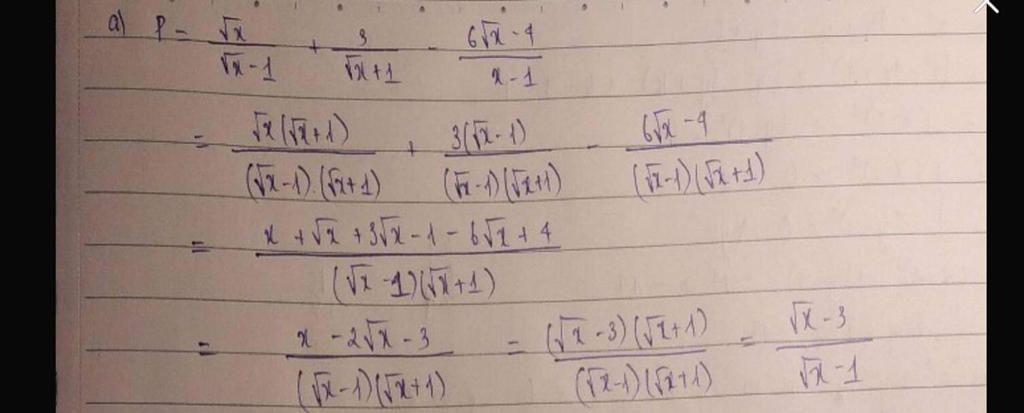 a) P = \frac{\sqrt{x}}{\sqrt{x}-1} + \frac{3}{\sqrt{x}+1} - \frac{6\sqrt{x}-4}{x-1}
= \frac{\sqrt{x}(\sqrt{x}+1)}{(\sqrt{x}-1).(\sqrt{x}+1)} + \frac{3(\sqrt{x}-1)}{(\sqrt{x}-1)(\sqrt{x}+1)} - \frac{6\sqrt{x}-4}{(\sqrt{x}-1)(\sqrt{x}+1)}
= \frac{x+\sqrt{x}+3\sqrt{x}-1-6\sqrt{x}+4}{(\sqrt{x}-1)(\sqrt{x}+1)}
= \frac{x-2\sqrt{x}-3}{(\sqrt{x}-1)(\sqrt{x}+1)} = \frac{(\sqrt{x}-3)(\sqrt{x}+1)}{(\sqrt{x}-1)(\sqrt{x}+1)} = \frac{\sqrt{x}-3}{\sqrt{x}-1}